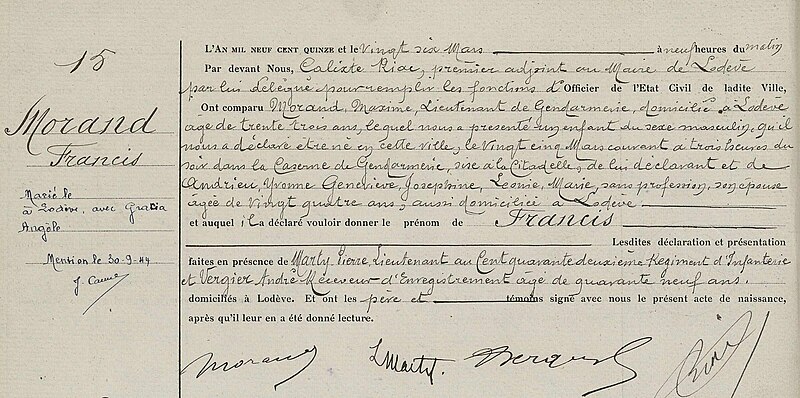 15
Morand
Francis
Marié le
à Lodève, avec Gracia
Angèle
Mention le 30-9-44
L'AN MIL NEUF CENT QUINZE et le Vingt six Mars à neuf heures du matin
Par devant Nous, Calixte Riac, premier adjoint au Maire de Lodève
par lui délégué pour remplir les fonctions d'Officier de l'Etat Civil de ladite Ville,
Ont comparu Morand, Maxime, Lieutenant de Gendarmerie, domicilié à Lodève
âgé de trente trois ans, lequel nous a présenté un enfant du sexe masculin, qu'il
nous a déclaré être né en cette ville, le Vingt cinq Mars courant à trois heures du
soir dans la Caserne de Gendarmerie, sise à la Citadelle, de lui déclarant et de
Andrieu, Yvonne Geneviève, Joséphine, Léonie, Marie, sans profession, son épouse
âgée de Vingt quatre ans, aussi domiciliée à Lodève
et auquel il a déclaré vouloir donner le prénom de Francis
Lesdites déclaration et présentation
faites en présence de Marty Pierre, Lieutenant au Cent quarante deuxième Régiment d'Infanterie
et Vergier André Receveur d'Enregistrement âgé de quarante neuf ans.
domiciliés à Lodève. Et ont les père et témoins signé avec nous le présent acte de naissance,
après qu'il leur en a été donné lecture.
Morand Marty